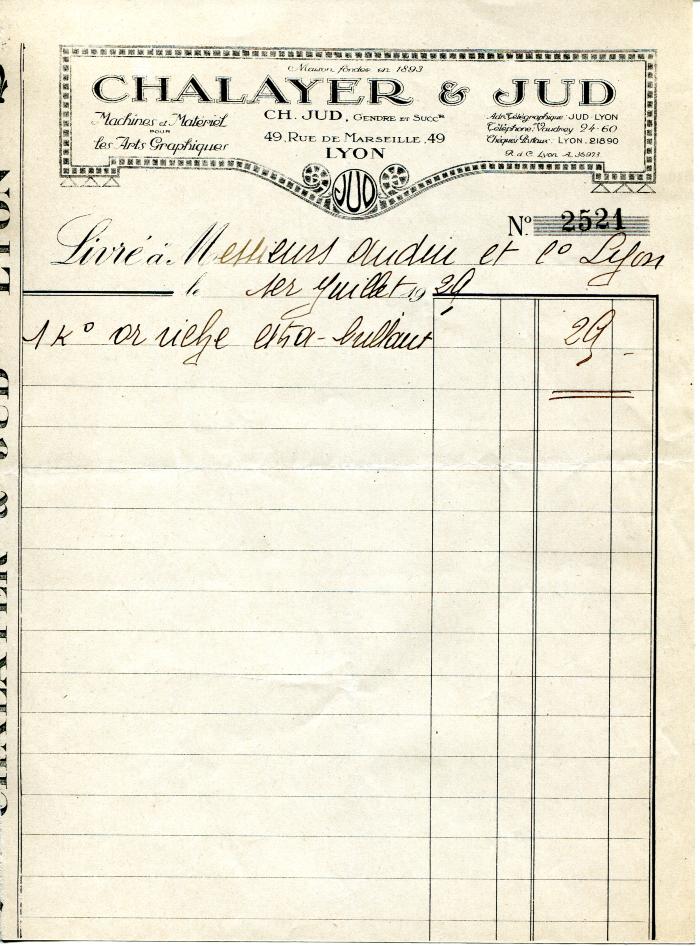 Maison fondée en 1893
CHALAYER & JUD
Machines et Matériel
POUR
les Arts Graphiques
CH. JUD, GENDRE ET SUCCR
49, RUE DE MARSEILLE, 49
LYON
Adr. Télégraphique: JUD-LYON
Téléphone: Vaudrey 24-60
Chèques Postaux: LYON. 21890
R. d. C. Lyon A. 36923
JUD
No 2521
Livré à Messieurs Audin et Co Lyon
le 1er Juillet 1929
1 Ko or riche extra-brillant 29 -
CHALAYER & JUD LYON